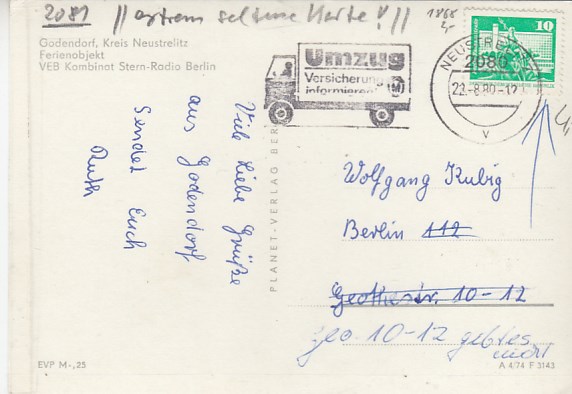 2081 // extrem seltene Karte !! //
1866
2,-
Godendorf, Kreis Neustrelitz
Ferienobjekt
VEB Kombinat Stern-Radio Berlin
Umzug
Versicherung
informieren
10
2080
22-8.80-12
v
Viele liebe Grüße
aus Godendorf
Sendet Euch
Ruth
PLANET-VERLAG BER
Wolfgang Kubig
Berlin 112
10-12
geo 10-12
EVP M -,25
A 4/74 F 3143